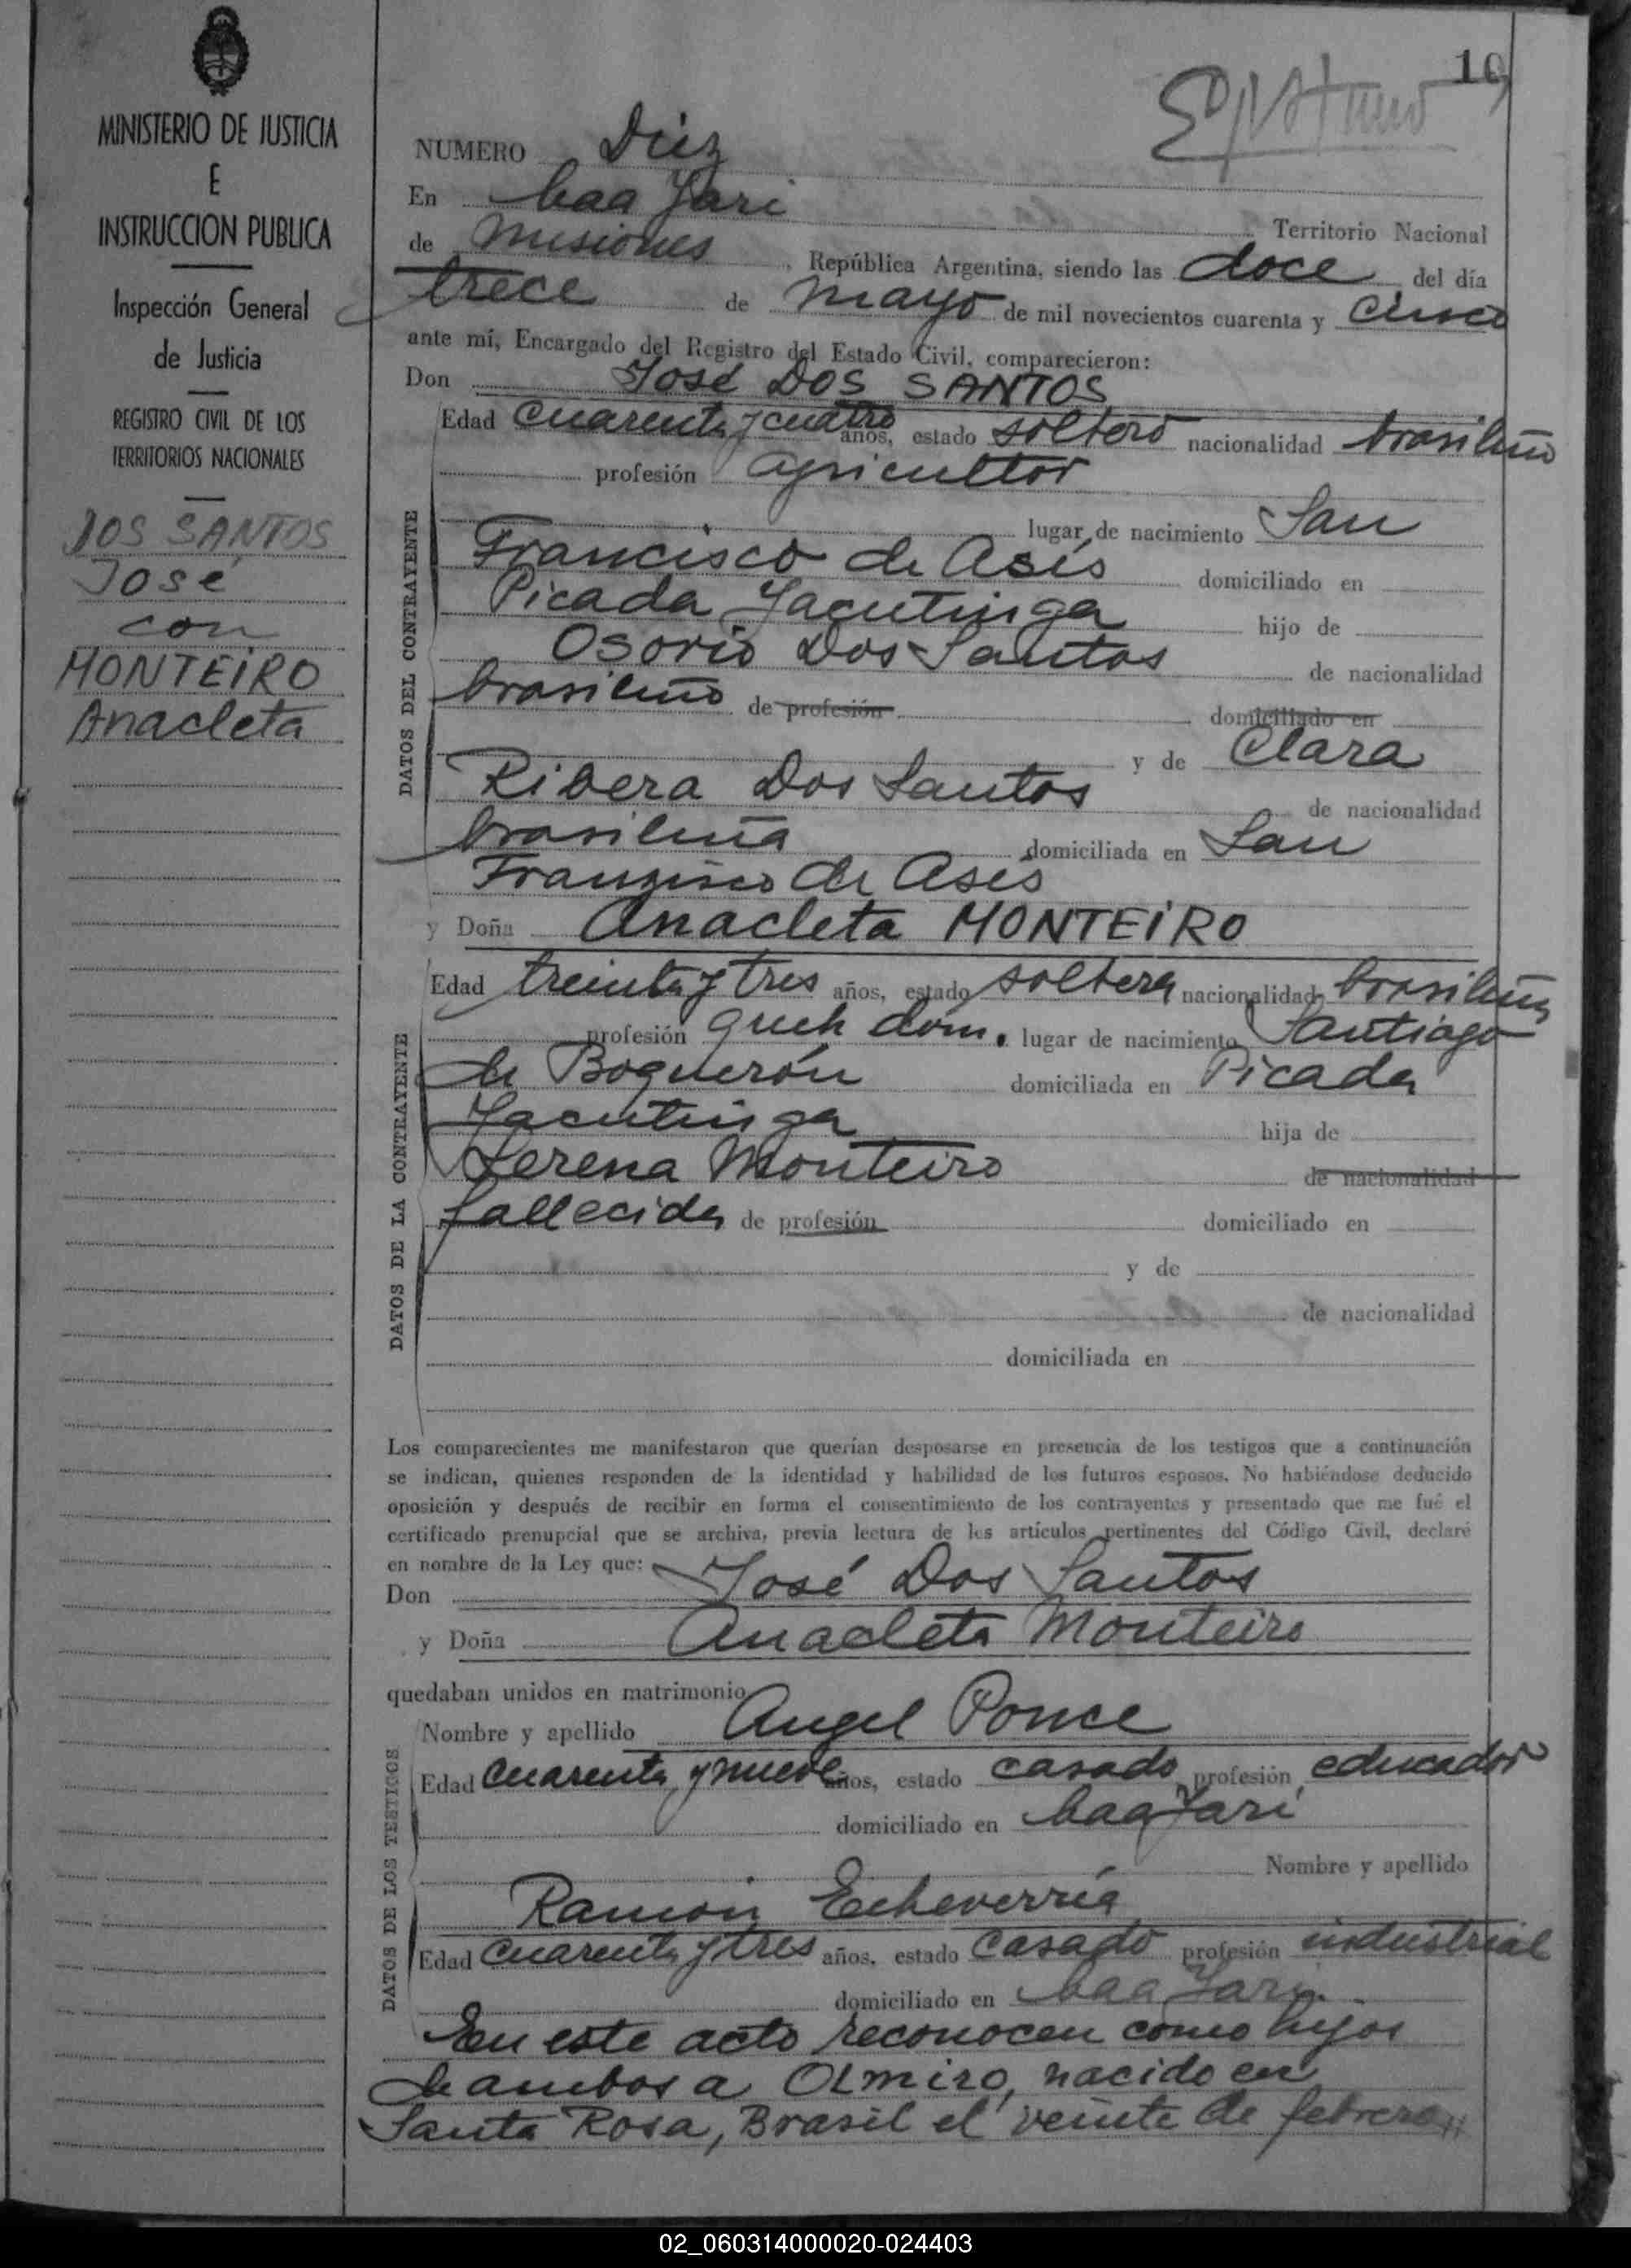 10
MINISTERIO DE JUSTICIA
E
INSTRUCCION PUBLICA
Inspección General
de Justicia
REGISTRO CIVIL DE LOS
TERRITORIOS NACIONALES
DOS SANTOS
José
con
MONTEIRO
Anacleta
NUMERO Diez
En Caa Yari Territorio Nacional
de Misiones, República Argentina, siendo las doce del día
trece de mayo de mil novecientos cuarenta y cinco
ante mí, Encargado del Registro del Estado Civil, comparecieron:
Don José DOS SANTOS
DATOS DEL CONTRAYENTE
Edad cuarenta y cuatro años, estado soltero nacionalidad brasileño
profesión agricultor
lugar de nacimiento San
Francisco de Asís domiciliado en
Picada Yacutinga hijo de
Osorio Dos Santos de nacionalidad
brasileño de profesión domiciliado en
y de Clara
Ribera Dos Santos de nacionalidad
brasileña domiciliada en San
Francisco de Asís
y Doña Anacleta MONTEIRO
DATOS DE LA CONTRAYENTE
Edad treinta y tres años, estado soltera nacionalidad brasileña
profesión queh dom. lugar de nacimiento Santiago
de Boquerón domiciliada en Picada
Yacutinga hija de
Serena Monteiro de nacionalidad
fallecida de profesión domiciliado en
y de
de nacionalidad
domiciliada en
Los comparecientes me manifestaron que querían desposarse en presencia de los testigos que a continuación
se indican, quienes responden de la identidad y habilidad de los futuros esposos. No habiéndose deducido
oposición y después de recibir en forma el consentimiento de los contrayentes y presentado que me fué el
certificado prenupcial que se archiva, previa lectura de los artículos pertinentes del Código Civil, declaré
en nombre de la Ley que:
Don José Dos Santos
y Doña Anacleta Monteiro
quedaban unidos en matrimonio
DATOS DE LOS TESTIGOS
Nombre y apellido Angel Ponce
Edad cuarenta y nueve años, estado casado profesión educador
domiciliado en Caa Yari
Nombre y apellido
Ramón Echeverría
Edad cuarenta y tres años, estado casado profesión industrial
domiciliado en Caa Yari.
En este acto reconocen como hijos
de ambos a Olmiro, nacido en
Santa Rosa, Brasil el veinte de febrero
02_060314000020-024403